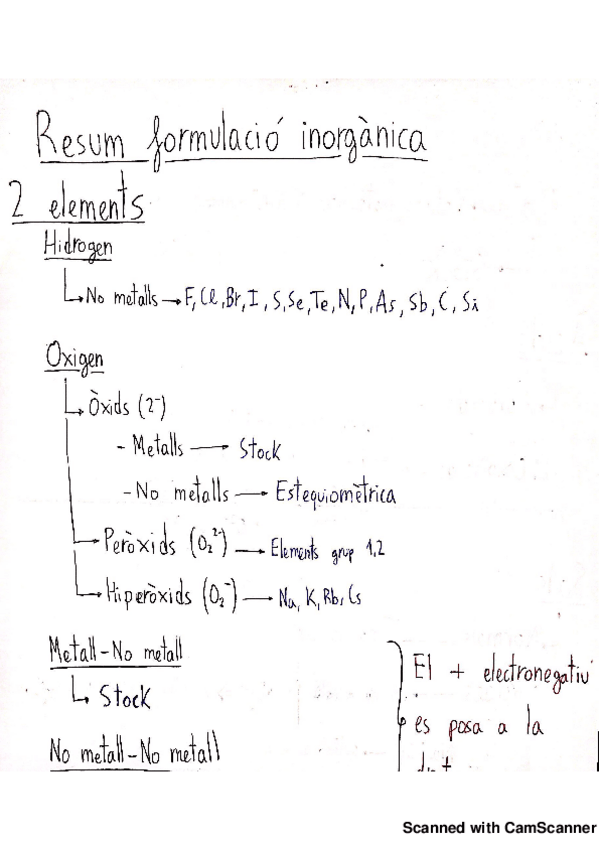 Resum formulació inorgànica
2 elements
Hidrogen
No metalls → F, Cl, Br, I, S, Se, Te, N, P, As, Sb, C, Si
Oxigen
Òxids (2-)
- Metalls → Stock
- No metalls → Estequiomètrica
Peròxids (O₂²⁻) → Elements grup 1,2
Hiperòxids (O₂⁻) → Na, K, Rb, Cs
Metall-No metall
Stock
No metall-No metall
El + electronegatiu
es posa a la
Scanned with CamScanner